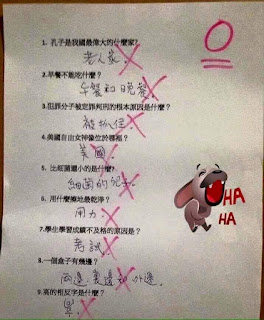 0
1. 孔子是我國最偉大的什麼家?
老人家
2.早餐不能吃什麼?
午餐和晚餐
3.犯罪分子被定罪判刑的根本原因是什麼?
被抓住
4.美國自由女神像位於哪裡?
美國
5. 比細菌還小的是什麼?
細菌的兒子
6. 用什麼擦地最乾淨?
用力
7.學生學習成績不及格的原因是?
考試
8.一個盒子有幾邊?
兩邊,裏邊和外邊
9.高的相反字是什麼?
HA
HA